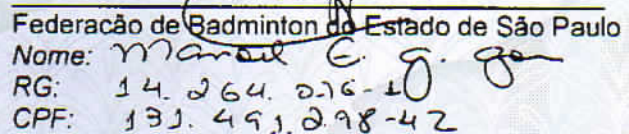 Federação de Badminton do Estado de São Paulo
Nome: Manoel E. G.
RG: 14.264.
CPF: 131.491.298-42